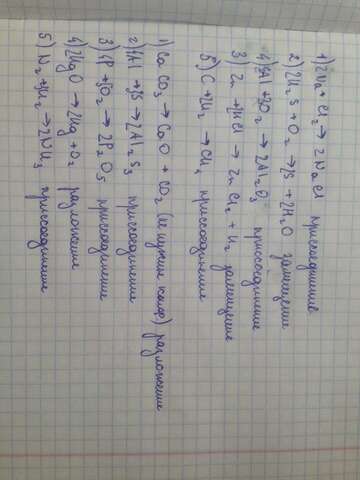 1) 2Na + Cl2 → 2NaCl присоединение
2) 2H2S + O2 → 2S + 2H2O замещение
4) 4Al + 3O2 → 2Al2O3 приссоединение
3) Zn + 2HCl → ZnCl2 + H2 замещение
5) C + 2H2 → CH4 приссоединение
1) CaCO3 → CaO + CO2 (не нужен коэф) разложение
2) 4Al + 3S → 2Al2S3 присоединение
3) 4P + 5O2 → 2P2O5 присоединение
4) 2HgO → 2Hg + O2 разложение
5) N2 + 3H2 → 2NH3 присоединение